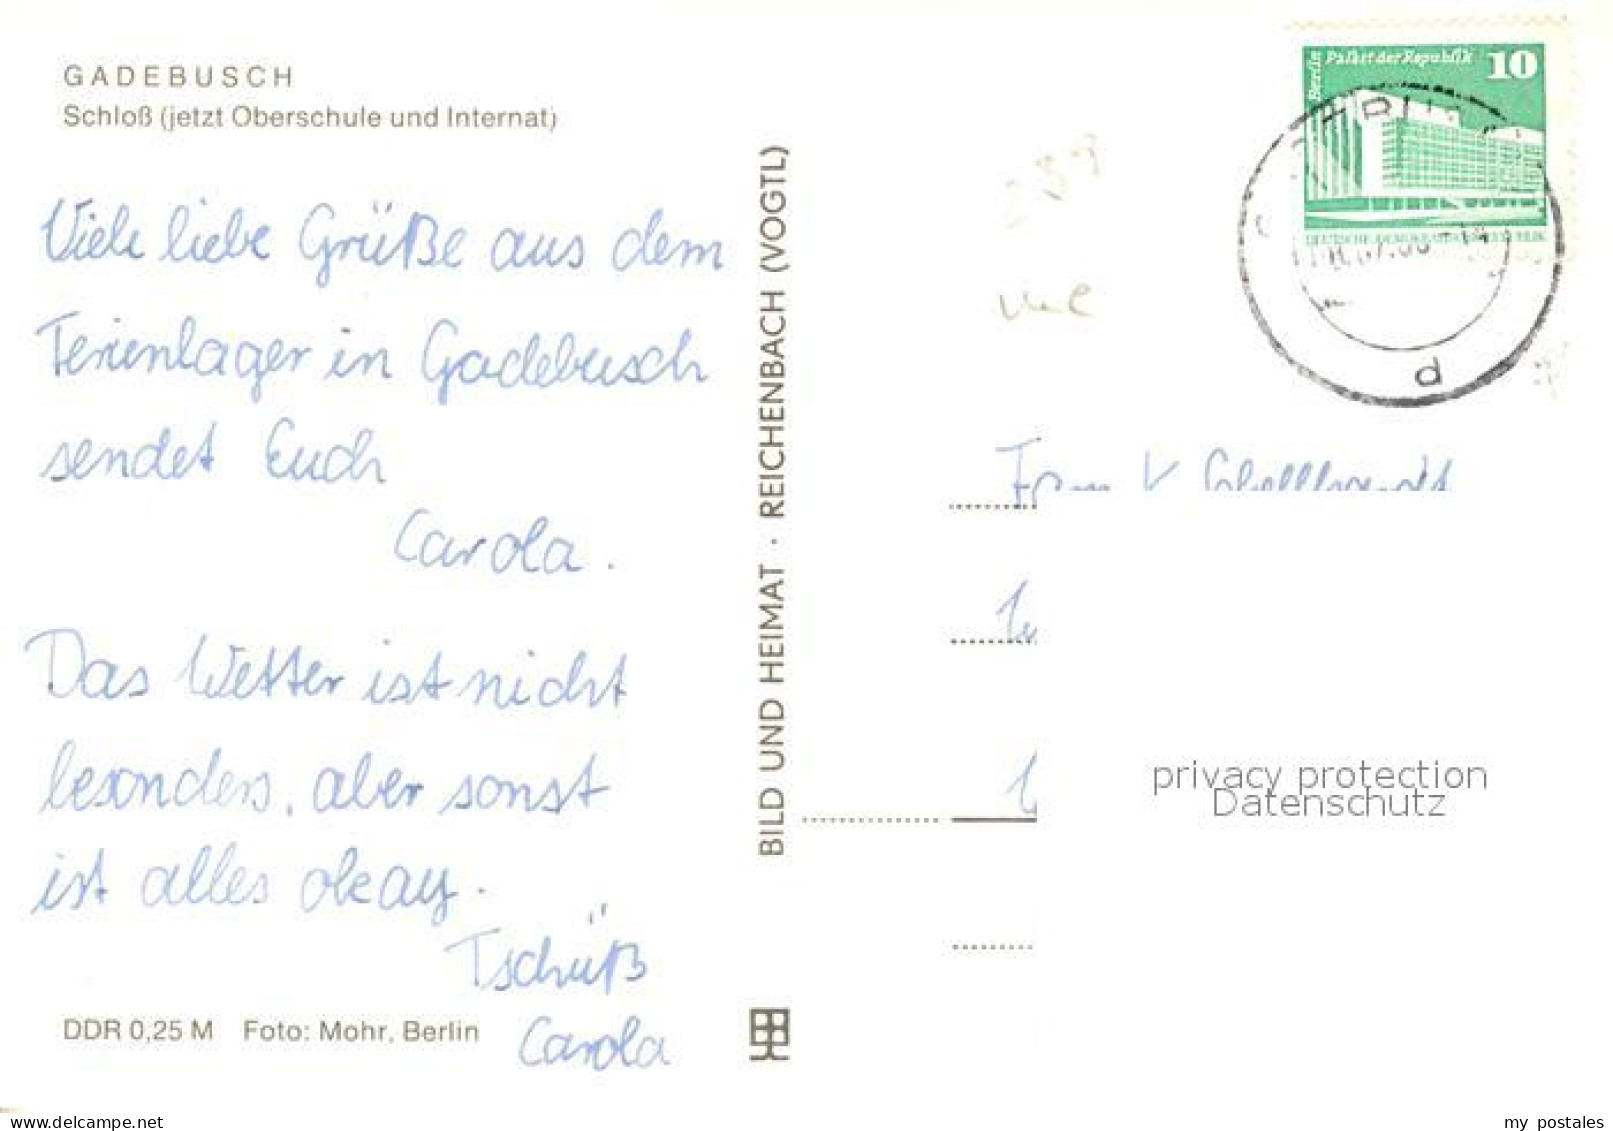 GADEBUSCH
Schloß (jetzt Oberschule und Internat)
Viele liebe Grüße aus dem
Ferienlager in Gadebusch
sendet Euch
Carola.
Das Wetter ist nicht
besonders, aber sonst
ist alles okay.
Tschüß
Carola
DDR 0,25 M Foto: Mohr, Berlin
BILD UND HEIMAT · REICHENBACH (VOGTL)
Berlin Palast der Republik 10
DEUTSCHE DEMOKRATISCHE REPUBLIK
d
privacy protection
Datenschutz
www.delcampe.net
my postales